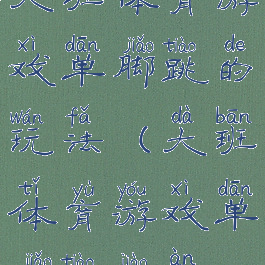 大班体育游
xì dān jiǎo tiào de
戏单脚跳的
wán fǎ dà bān
玩法（大班
tǐ yù yóu xì dān
体育游戏单
jiǎo tiào jiào àn